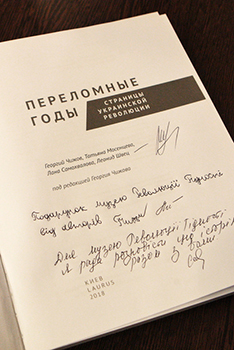 ПЕРЕЛОМНЫЕ
ГОДЫ
СТРАНИЦЫ
УКРАИНСКОЙ
РЕВОЛЮЦИИ
Георгий Чижов, Татьяна Мосенцева,
Лана Самохвалова, Леонид Швец
под редакцией Георгия Чижова
Подарунок музею Революції Гідності
від авторів
Для музею Революції Гідності
Я рада розповісти цю історію
разом з Вами
КИЕВ
LAURUS
2018